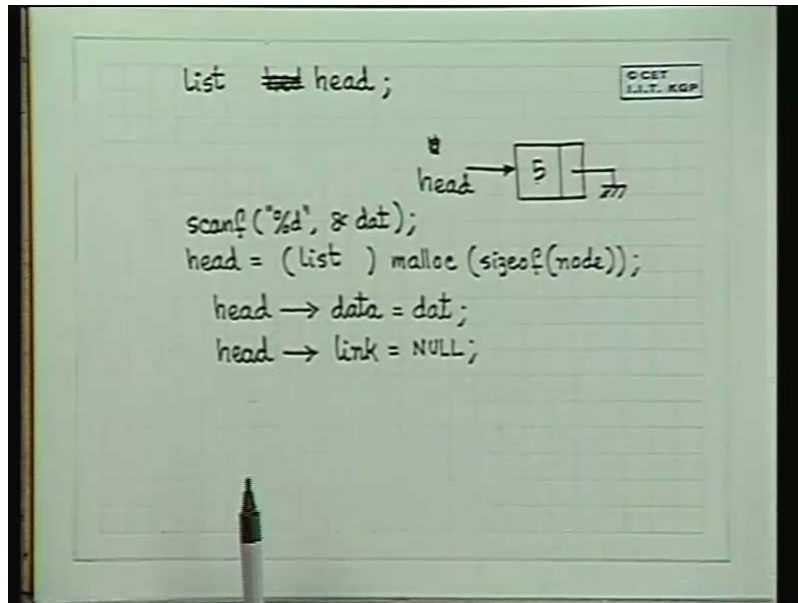 list head;
© CET
I.I.T. KGP
head
5
scanf("%d", & dat);
head = (list ) malloc (sizeof(node));
head → data = dat;
head → link = NULL;